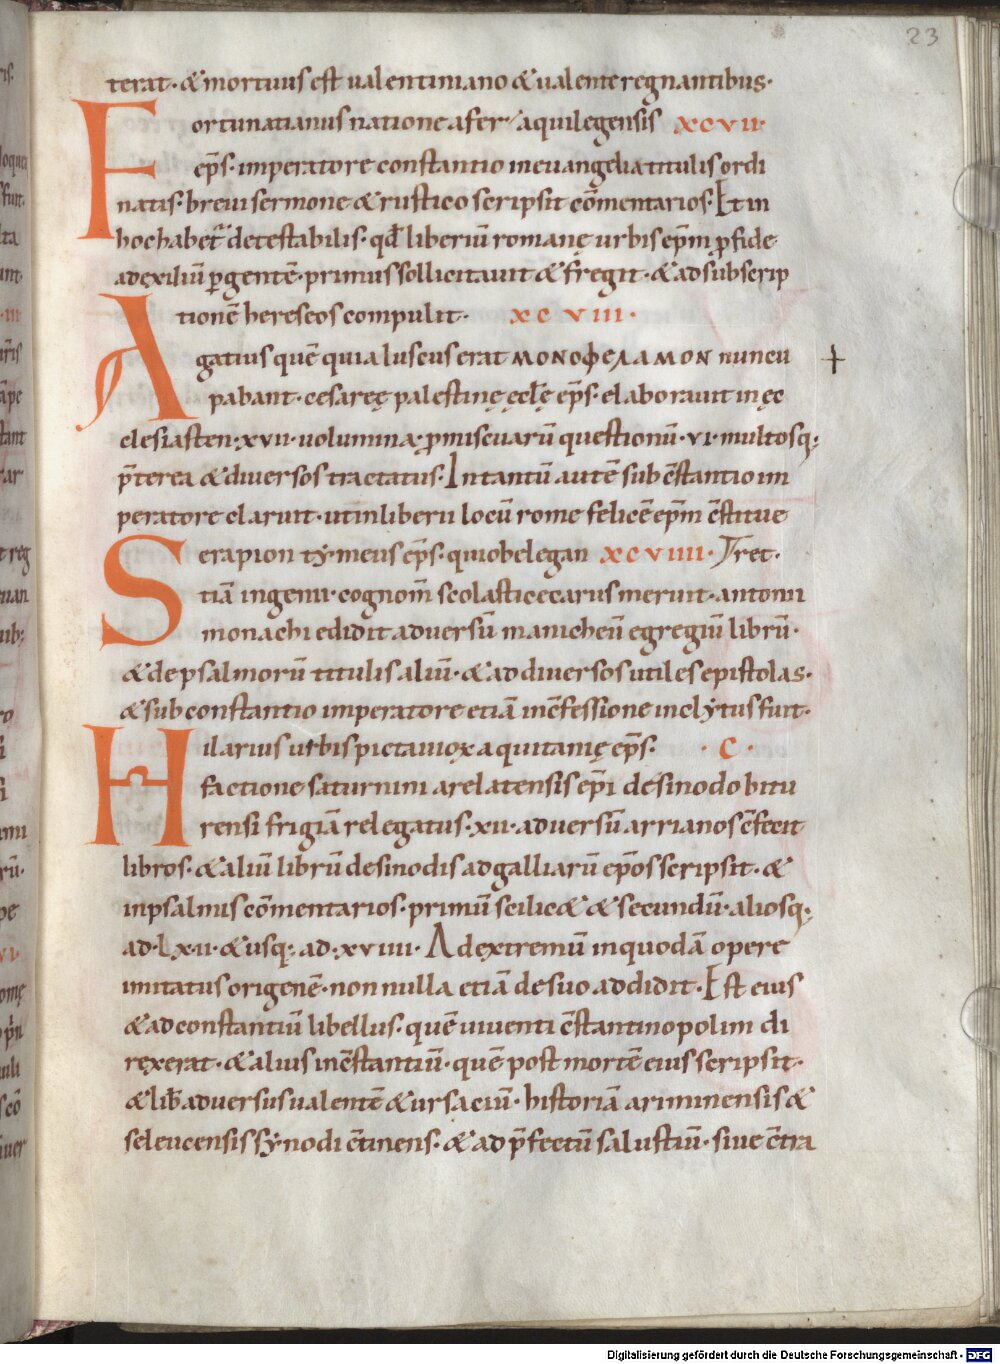 23
terat· & mortuus est ualentiniano & ualente regnantibus·
Fortunatianus natione afer aquilegensis XCVII·
ep̄s· imperatore constantio in euangelia titulis ordi
natis· breui sermone & rustico scripsit cōmentarios· Et in
hoc habet᷑ detestabilis· qđ liberiū romanę urbis ep̄m ꝓ fide
ad exiliū ꝑgentē· primus sollicitauit & fregit· & ad subscrip
tionē hereseos compulit· XCVIII·
Agatius quē quia luscus erat ΜΟΝΟΦΕΛΑΜΟΝ nuncu
pabant· cesareę palestinę ęcłę ep̄s· elaborauit in ęc
clesiasten· xvii· uolumina· ꝓmiscuarū questionū· vi· multosq;
p̄terea & diuersos tractatus· In tantū autē sub c̄stantio im
peratore claruit· ut in liberii locū rome felicē ep̄m c̄stitue
Serapion tymeus ep̄s· qui ob elegan XCVIIII· ret·
tiā ingenii· cognom̄ scolastice carus meruit· antonii
monachi edidit aduersū manicheū egregiū librū·
& de psalmorū titulis aliū· & ad diuersos utiles epistolas·
& sub constantio imperatore etiā in c̄fessione inclytus fuit·
Hilarius urbis pictauiox aquitanię ep̄s· · C ·
factione saturnini arelatensis ep̄i de sinodo bitu
rensi frigiā relegatus· xii· aduersū arrianos c̄fecit
libros· & aliū librū de sinodis ad galliarū ep̄os scripsit· &
in psalmis cōmentarios· primū scilic& & secundū· aliosq;
ad· Lx·ii· & usq; ad· xviiii· Ad extremū in quodā opere
imitatus origenē· non nulla etiā de suo addidit· Est eius
& ad constantiū libellus· quē uiuenti c̄stantinopolim di
rexerat· & alius in c̄stantiū· quē post mortē eius scripsit·
& lib̄ aduersus ualentē & ursaciū· historiā ariminensis &
seleucensis synodi c̄tinens· & ad p̄fectū salustiū· siue c̄tra
Digitalisierung gefördert durch die Deutsche Forschungsgemeinschaft - DFG